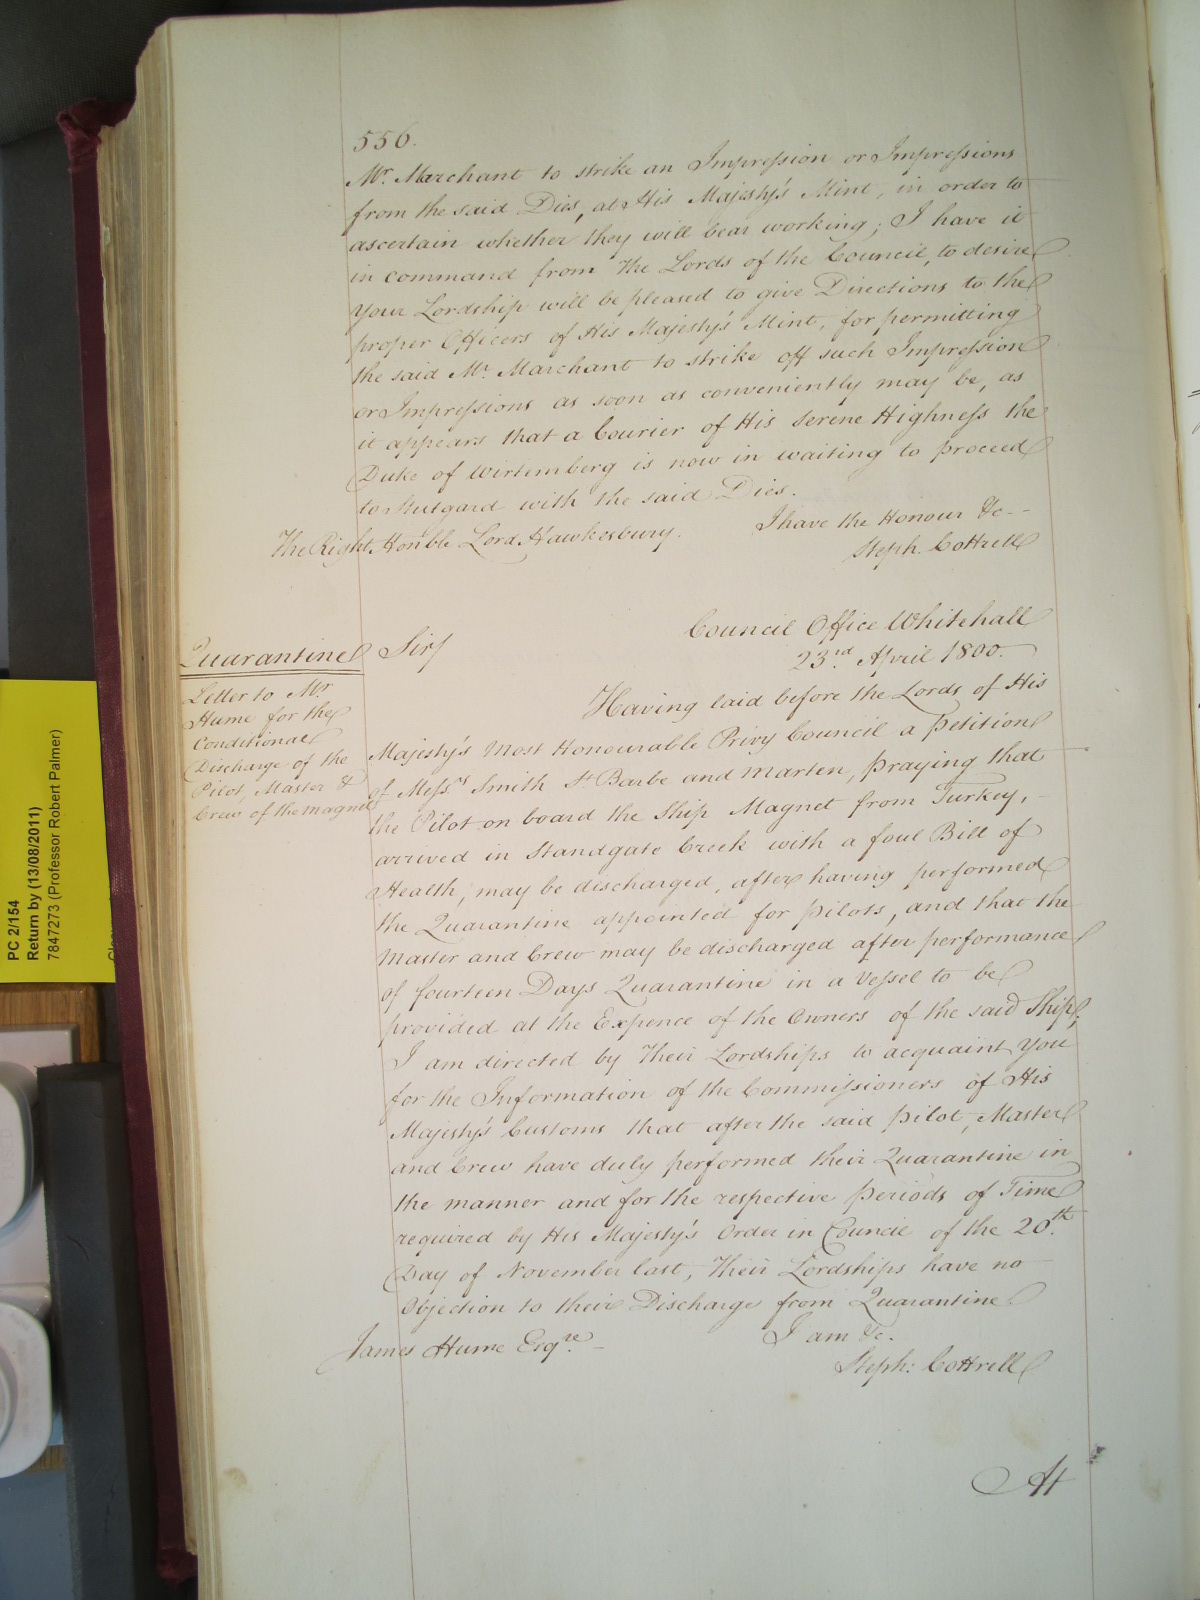 556.
Mr. Marchant to strike an Impression or Impressions
from the said Dies, at His Majesty's Mint, in order to
ascertain whether they will bear working; I have it
in command from the Lords of the Council, to desire
Your Lordship will be pleased to give Directions to the
proper Officers of His Majesty's Mint, for permitting
the said Mr. Marchant to strike off such Impression
or Impressions as soon as conveniently may be, as
it appears that a Courier of His Serene Highness the
Duke of Wirtemberg is now in waiting to proceed
to Stutgard with the said Dies.
I have the Honour &c--
The Right Honble Lord Hawkesbury.
Steph. Cottrell
Council Office Whitehall
23rd. April 1800.
Quarantine
Letter to Mr.
Hume for the
Conditional
Discharge of the
Pilot, Master &
Crew of the Magnet
Sir/
Having laid before the Lords of His
Majesty's Most Honourable Privy Council a Petition
of Messrs. Smith St. Barbe and Marten, praying that
the Pilot on board the Ship Magnet from Turkey, -
arrived in Standgate Creek with a foul Bill of
Health, may be discharged, after having performed
the Quarantine appointed for Pilots, and that the
Master and Crew may be discharged after performance
of fourteen Days Quarantine in a Vessel to be
provided at the Expence of the Owners of the said Ship;
I am directed by Their Lordships to acquaint You
for the Information of the Commissioners of His
Majesty's Customs that after the said Pilot, Master
and Crew have duly performed their Quarantine in
the manner and for the respective Periods of Time
required by His Majesty's Order in Council of the 20th.
Day of November last, Their Lordships have no
Objection to their Discharge from Quarantine
I am &c.
James Hume Esqre. -
Steph: Cottrell
At
PC 2/154
Return by (13/08/2011)
7847273 (Professor Robert Palmer)